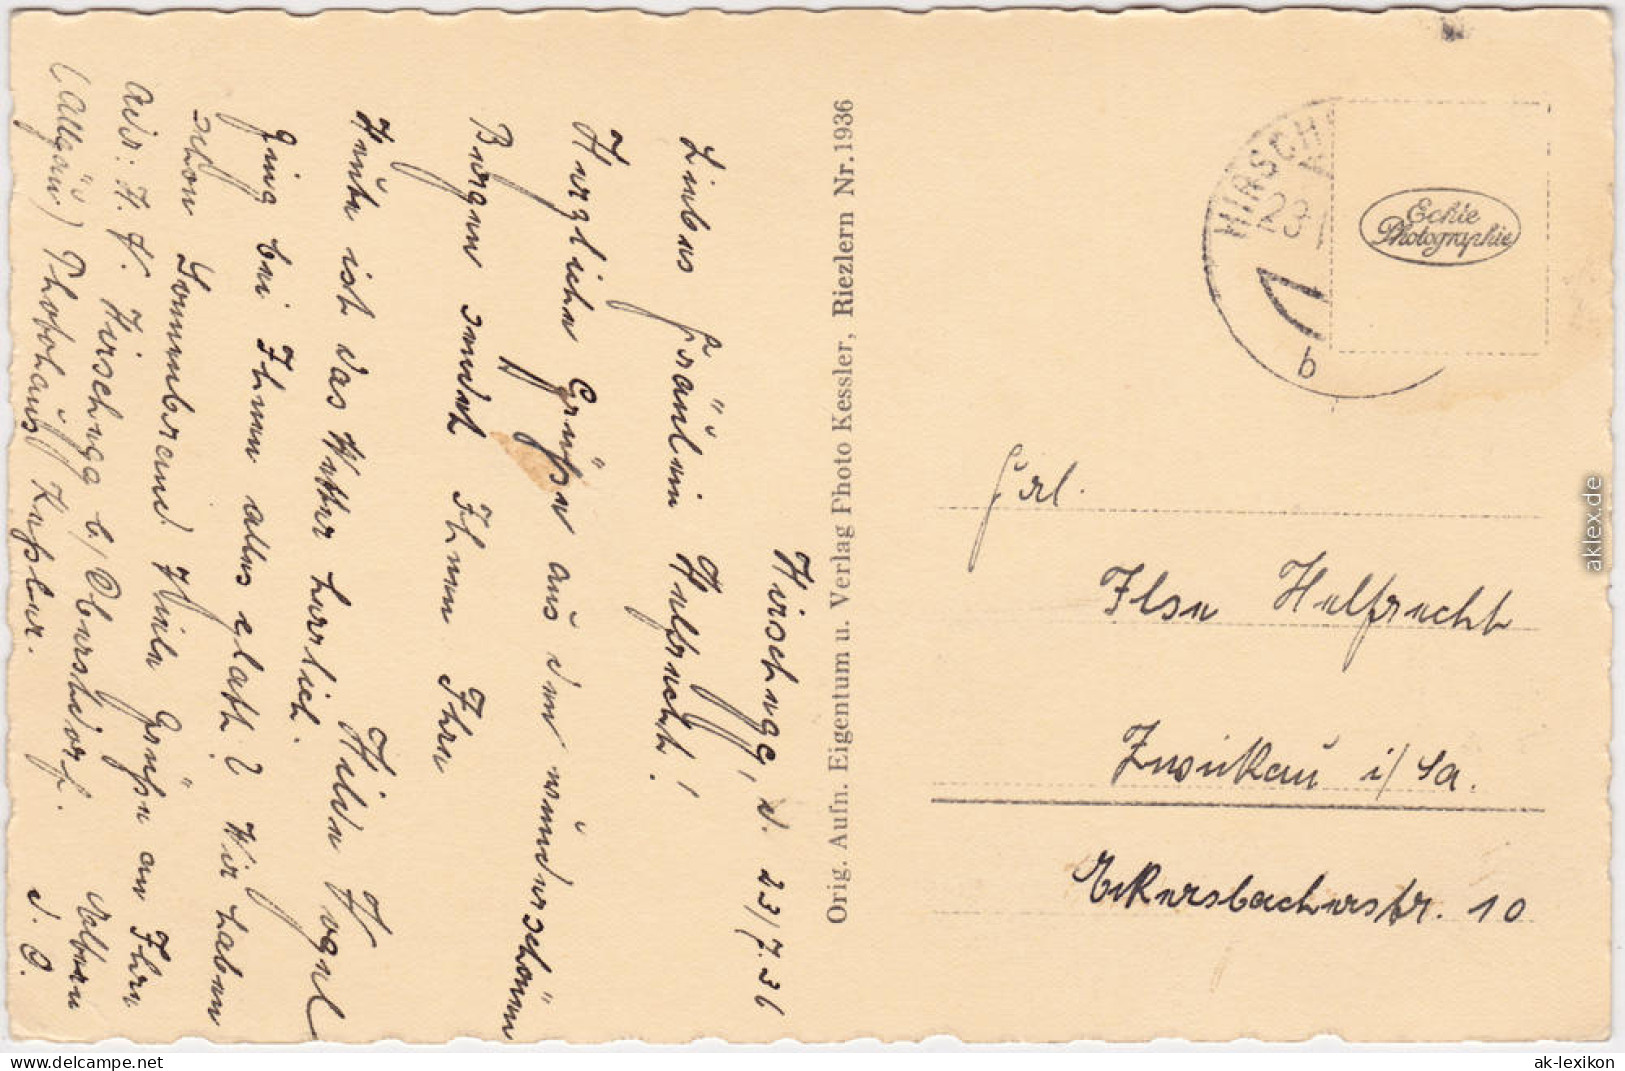 Hirschegg, d. 23/7.36
Liebes Fräulein Helfrecht!
Herzliche Grüße aus den wunderschönen
Bergen sendet Ihnen Ihre
Hilde Vogel
Heute ist das Wetter herrlich.
Ging bei Ihnen alles glatt? Wir haben
schon Sonnenbrand. Viele Grüße an Ihre
Eltern
d. O.
Adr: H. V. Hirschegg b/Oberstdorf.
(Allgäu) Photohaus Keßler.
Orig. Aufn. Eigentum u. Verlag Photo Kessler, Riezlern Nr. 1936
HIRSCH
23
b
Echte
Photographie
Frl.
Ilse Helfrecht
Zwickau i/Sa.
Eckersbacherstr. 10
aklex.de
www.delcampe.net
ak-lexikon